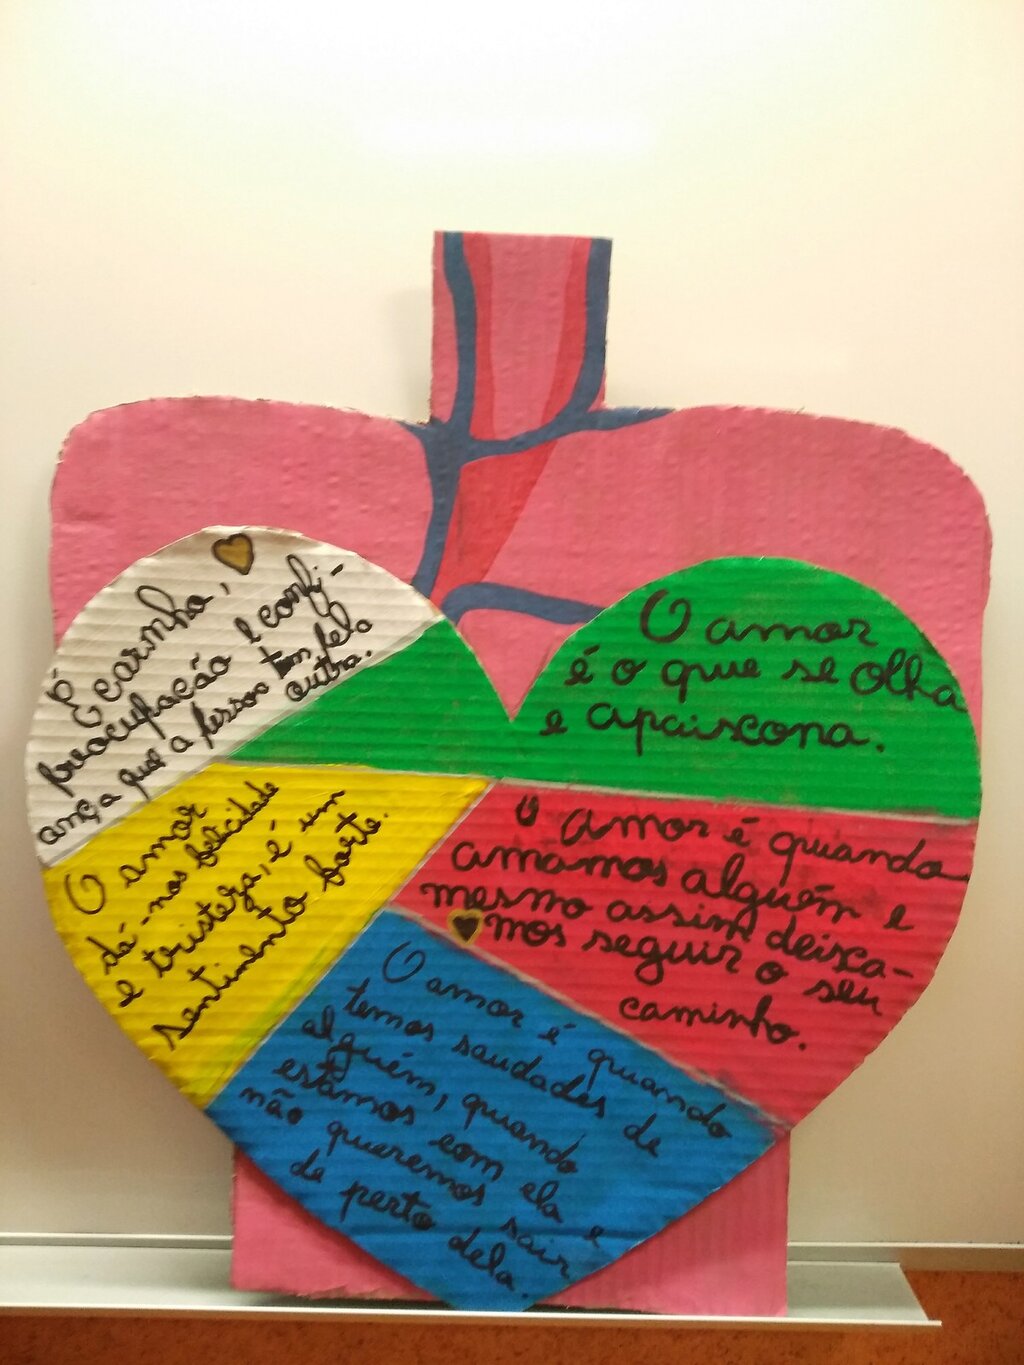 É carinho,
preocupação e confi-
ança que a pessoa tem pela
outra.
O amor
é o que se olha
e apaiscona.
O amor
dá-nos felicidade
e tristeza, é um
sentimento forte.
O amor é quando
amamos alguém e
mesmo assim deixa-
mos seguir o seu
caminho.
O amor é quando
temos saudades de
alguém, quando
estamos com ela e
não queremos sair
de perto dela.